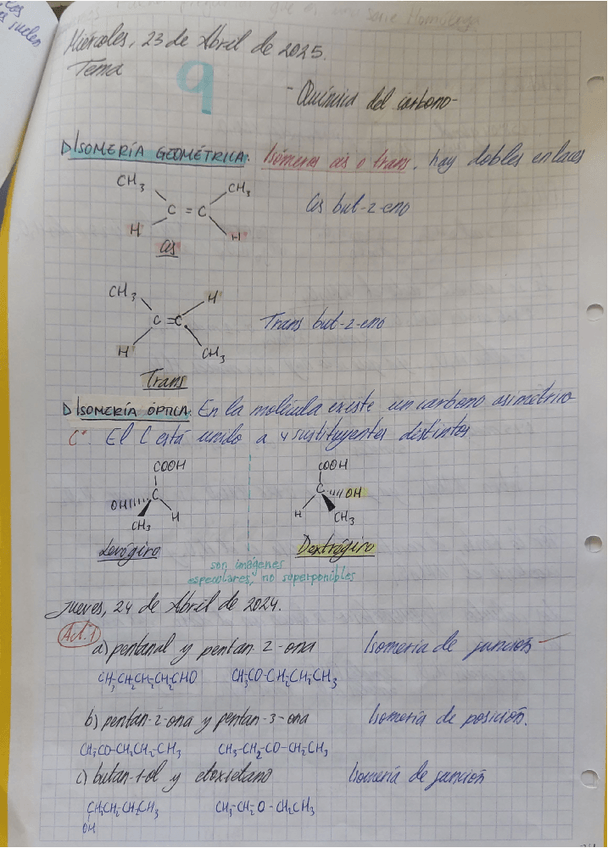 Miércoles, 23 de Abril de 2025.
Tema 9
-Química del carbono-
▷ISOMERÍA GEOMÉTRICA: Isómeros cis o trans. hay dobles enlaces
CH3 CH3
C = C Cis but-2-eno
H H
Cis
CH3 H
C = C Trans but-2-eno
H CH3
Trans
▷ISOMERÍA ÓPTICA: En la molécula existe un carbono asimétrico
C* El C está unido a 4 sustituyentes distintos
COOH COOH
OH C C OH
CH3 H H CH3
Levógiro Dextrógiro
son imágenes
especulares, no superponibles
Jueves, 24 de Abril de 2024.
Act.1
a) pentanal y pentan-2-ona Isomería de función
CH3CH2CH2CH2CHO CH3CO-CH2CH2CH3
b) pentan-2-ona y pentan-3-ona Isomería de posición.
CH3CO-CH2CH2-CH3 CH3-CH2-CO-CH2CH3
c) butan-1-ol y etoxietano Isomería de función
CH2CH2CH2CH3 CH3-CH2-O-CH2CH3
OH